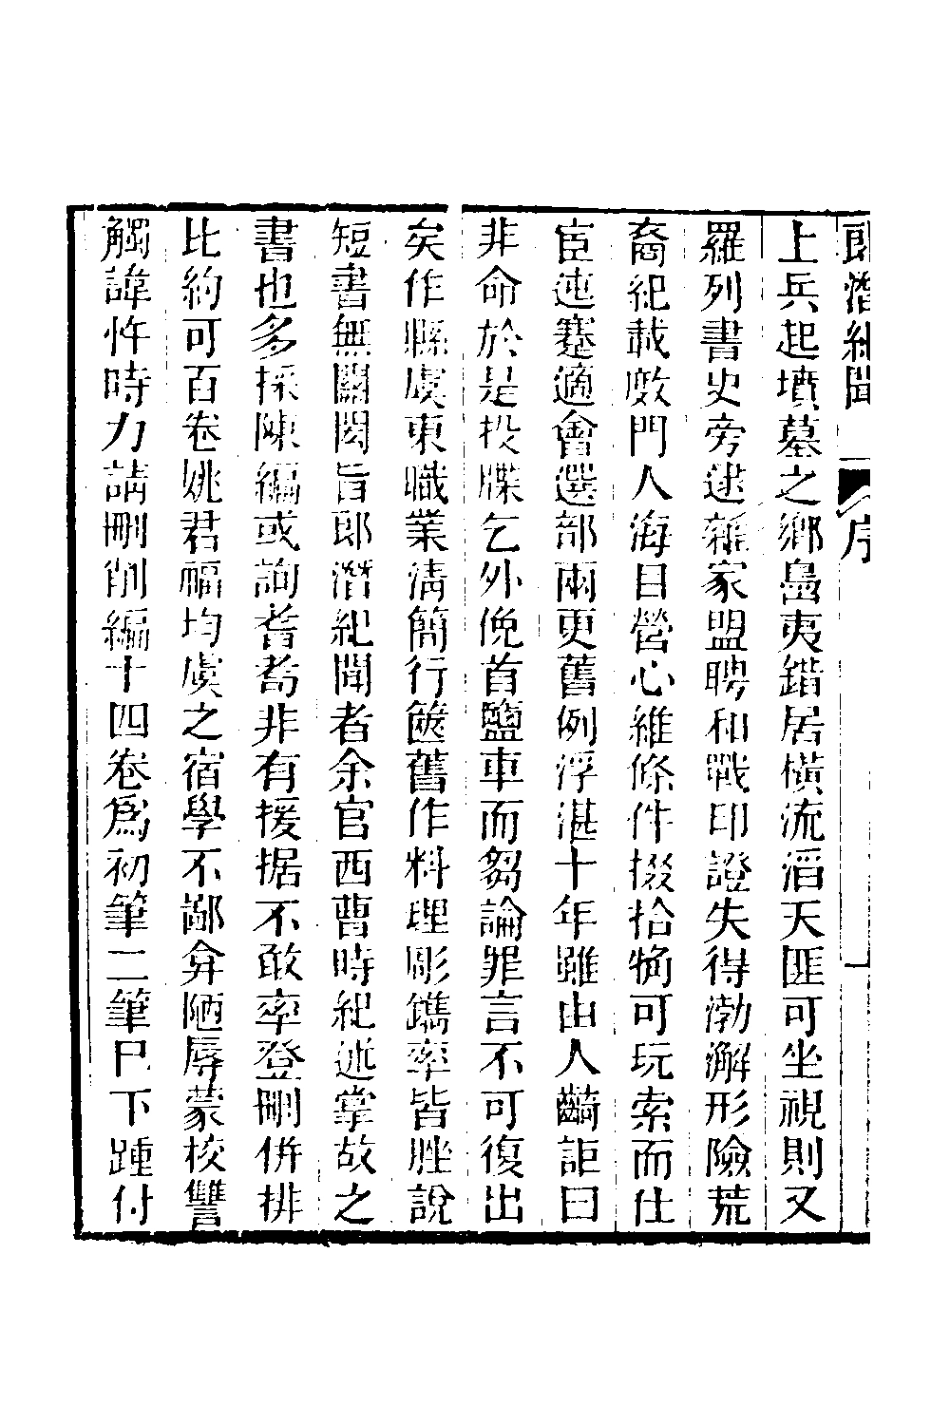 郎潛紀聞 序
上兵起墳墓之鄉島夷錯居橫流滔天匪可坐視則又
羅列書史旁逮雜家盟聘和戰印證失得渤澥形險荒
裔紀載廒門人海目營心維條件掇拾觕可玩索而仕
宦迍蹇適會選部兩更舊例浮湛十年雖由人齮詎曰
非命於是投牒乞外俛首鹽車而芻論罪言不可復出
矣作縣虞東職業淸簡行篋舊作料理彫鐫率皆脞說
短書無關閎旨郎潛紀聞者余官西曹時紀述掌故之
書也多採陳編或詢耆耇非有援据不敢率登刪併排
比約可百卷姚君福均虞之宿學不鄙弇陋辱蒙校讐
觸諱忤時力請刪削編十四卷爲初筆二筆巳下踵付